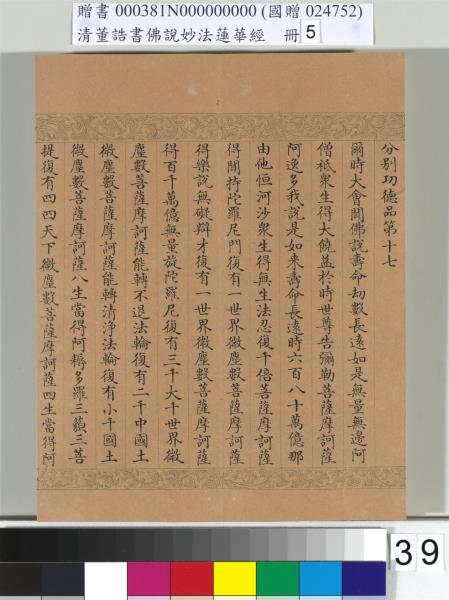 贈書 000381N000000000 (國贈 024752)
清董誥書佛說妙法蓮華經 冊 5
分別功德品第十七
爾時大會聞佛說壽命劫數長遠如是無量無邊阿
僧祇眾生得大饒益於時世尊告彌勒菩薩摩訶薩
阿逸多我說是如來壽命長遠時六百八十萬億那
由他恒河沙眾生得無生法忍復千倍菩薩摩訶薩
得聞持陀羅尼門復有一世界微塵數菩薩摩訶薩
得樂說無礙辯才復有一世界微塵數菩薩摩訶薩
得百千萬億無量旋陀羅尼復有三千大千世界微
塵數菩薩摩訶薩能轉不退法輪復有二千中國土
微塵數菩薩摩訶薩能轉清淨法輪復有小千國土
微塵數菩薩摩訶薩八生當得阿耨多羅三藐三菩
提復有四四天下微塵數菩薩摩訶薩四生當得阿
39